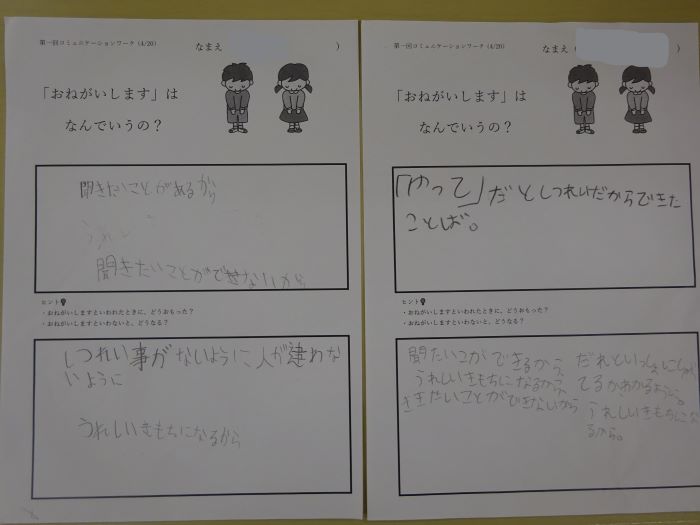 第一回コミュニケーションワーク (4/20)
なまえ )
「おねがいします」は
なんでいうの？
聞きたいことがあるから
聞きたいことができないから
ヒント
・おねがいしますといわれたときに、どうおもった？
・おねがいしますといわないと、どうなる？
しつれい事がないように、人が
ないように
うれしいきもちになるから
第一回コミュニケーションワーク (4/20)
なまえ ( )
「おねがいします」は
なんでいうの？
「やって」だとしつれいだからできた
ことば。
ヒント
・おねがいしますといわれたときに、どうおもった？
・おねがいしますといわないと、どうなる？
聞たいこがができるから、
うれしいきもちになるから、
ききたいことができないから
だれといっしょにこ
てるかわかるように。
うれしいきもちにな
るから。